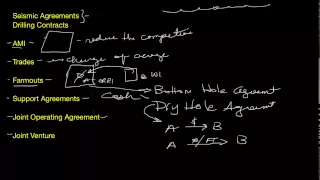 Seismic Agreements
Drilling Contracts
- AMI - reduce the competition
- Trades - exchange of acreage
- Farmouts ORRI WI
- Support Agreements - Cash Bottom Hole Agreement
Dry Hole Agreement
- Joint Operating Agreement - A $ B
- Joint Venture A $/FT B